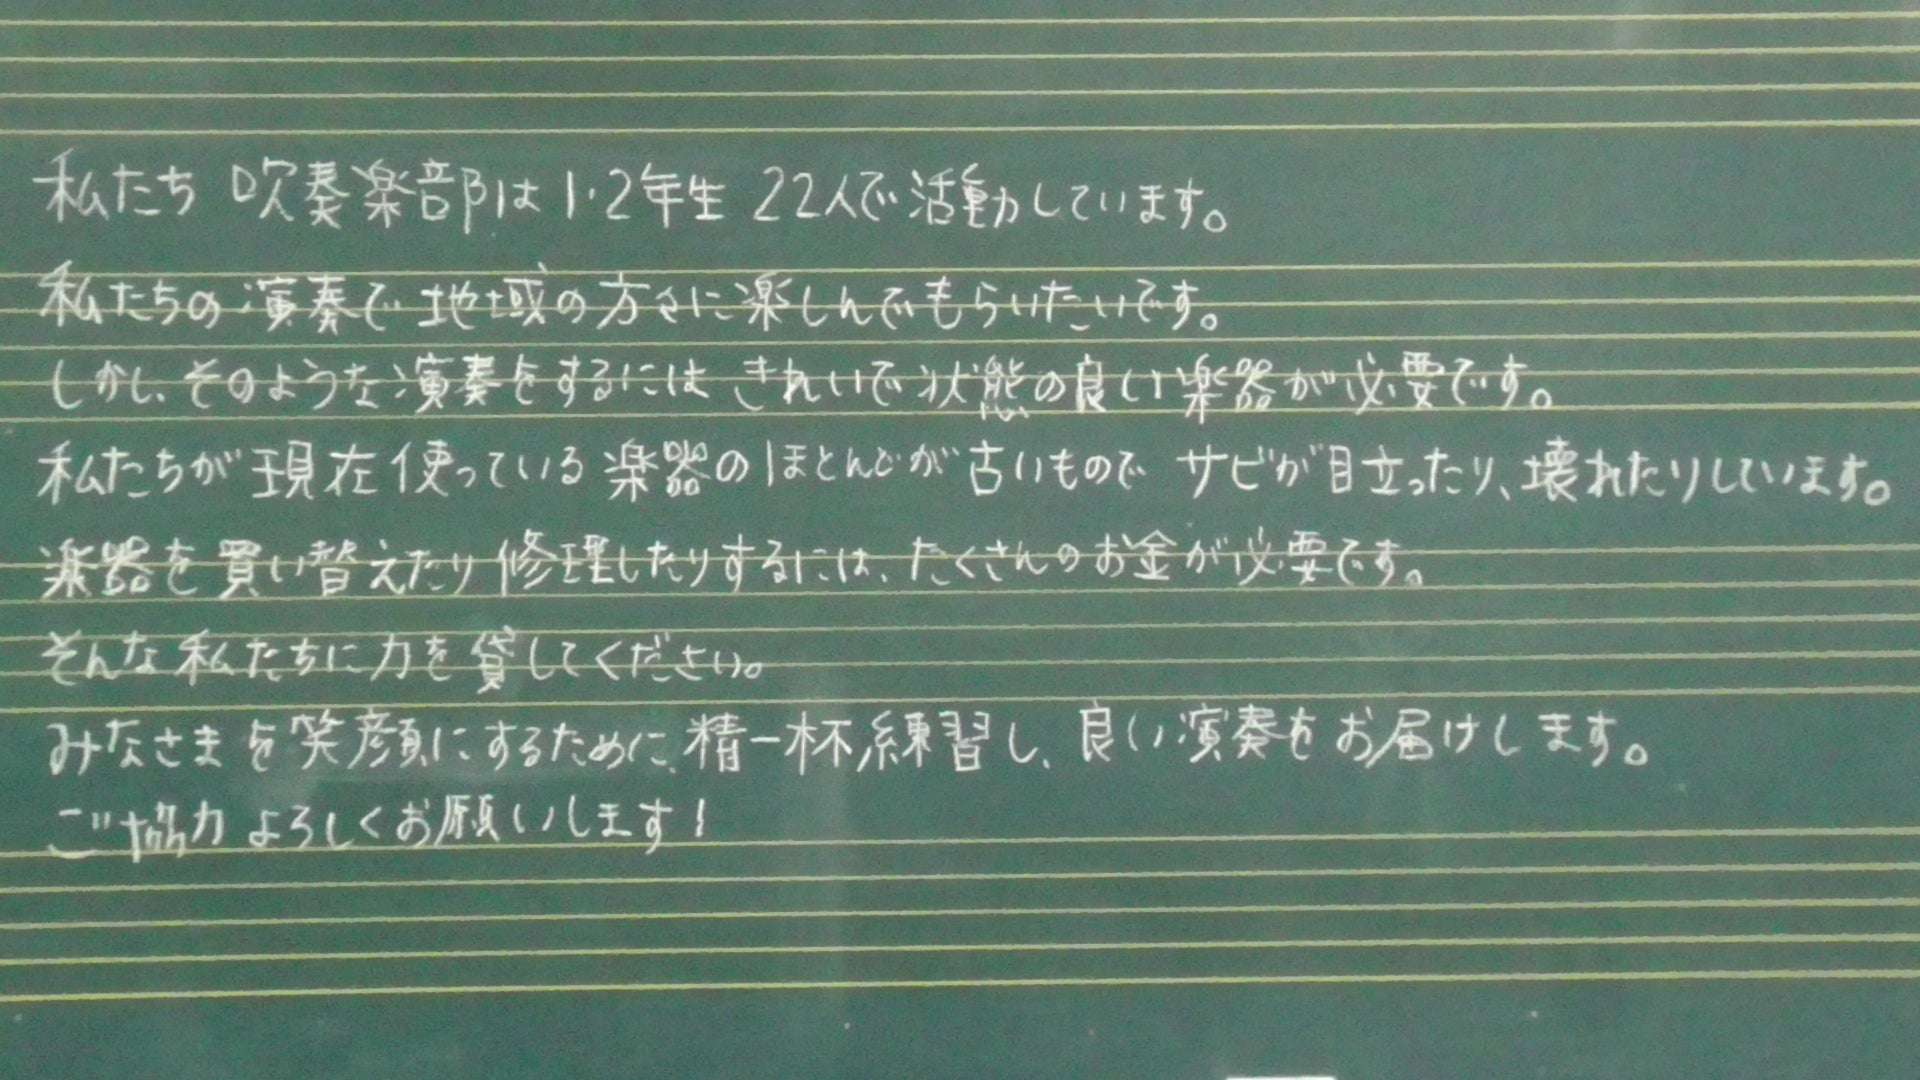 私たち 吹奏楽部は1・2年生 22人で活動しています。
私たちの演奏で地域の方々に楽しんでもらいたいです。
しかし、そのような演奏をするには きれいで状態の良い楽器が必要です。
私たちが現在使っている楽器のほとんどが古いもので サビが目立ったり、壊れたりしています。
楽器を買い替えたり修理したりするには、たくさんのお金が必要です。
そんな私たちに力を貸してください。
みなさまを笑顔にするために、精一杯練習し、良い演奏をお届けします。
ご協力よろしくお願いします!